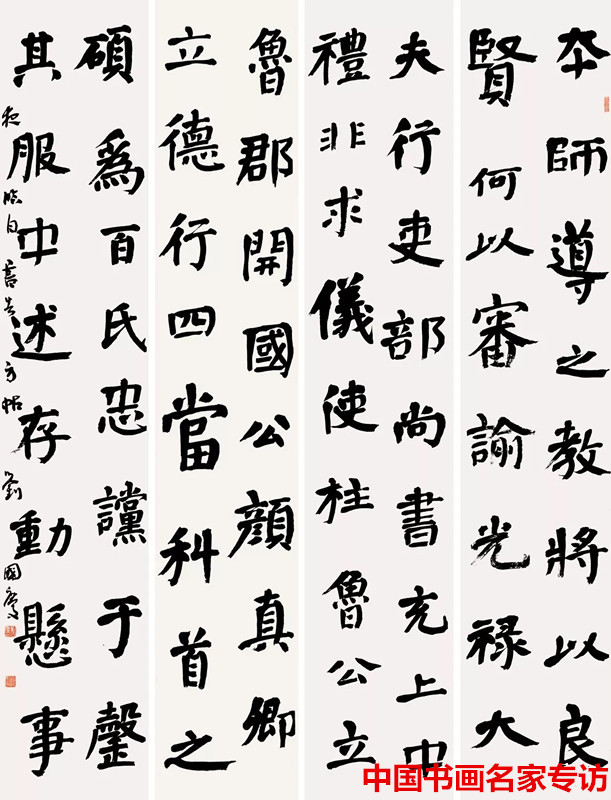 夲師導之教將以良
賢何以審諭光禄大
夫行吏部尚書充上中
禮非求儀使柱魯公立
魯郡開國公顔真卿
立德行四當科首之
碩為百氏忠讜于罄
其服中述存動懸事
臨自書告身帖 劉國慶
中国书画名家专访